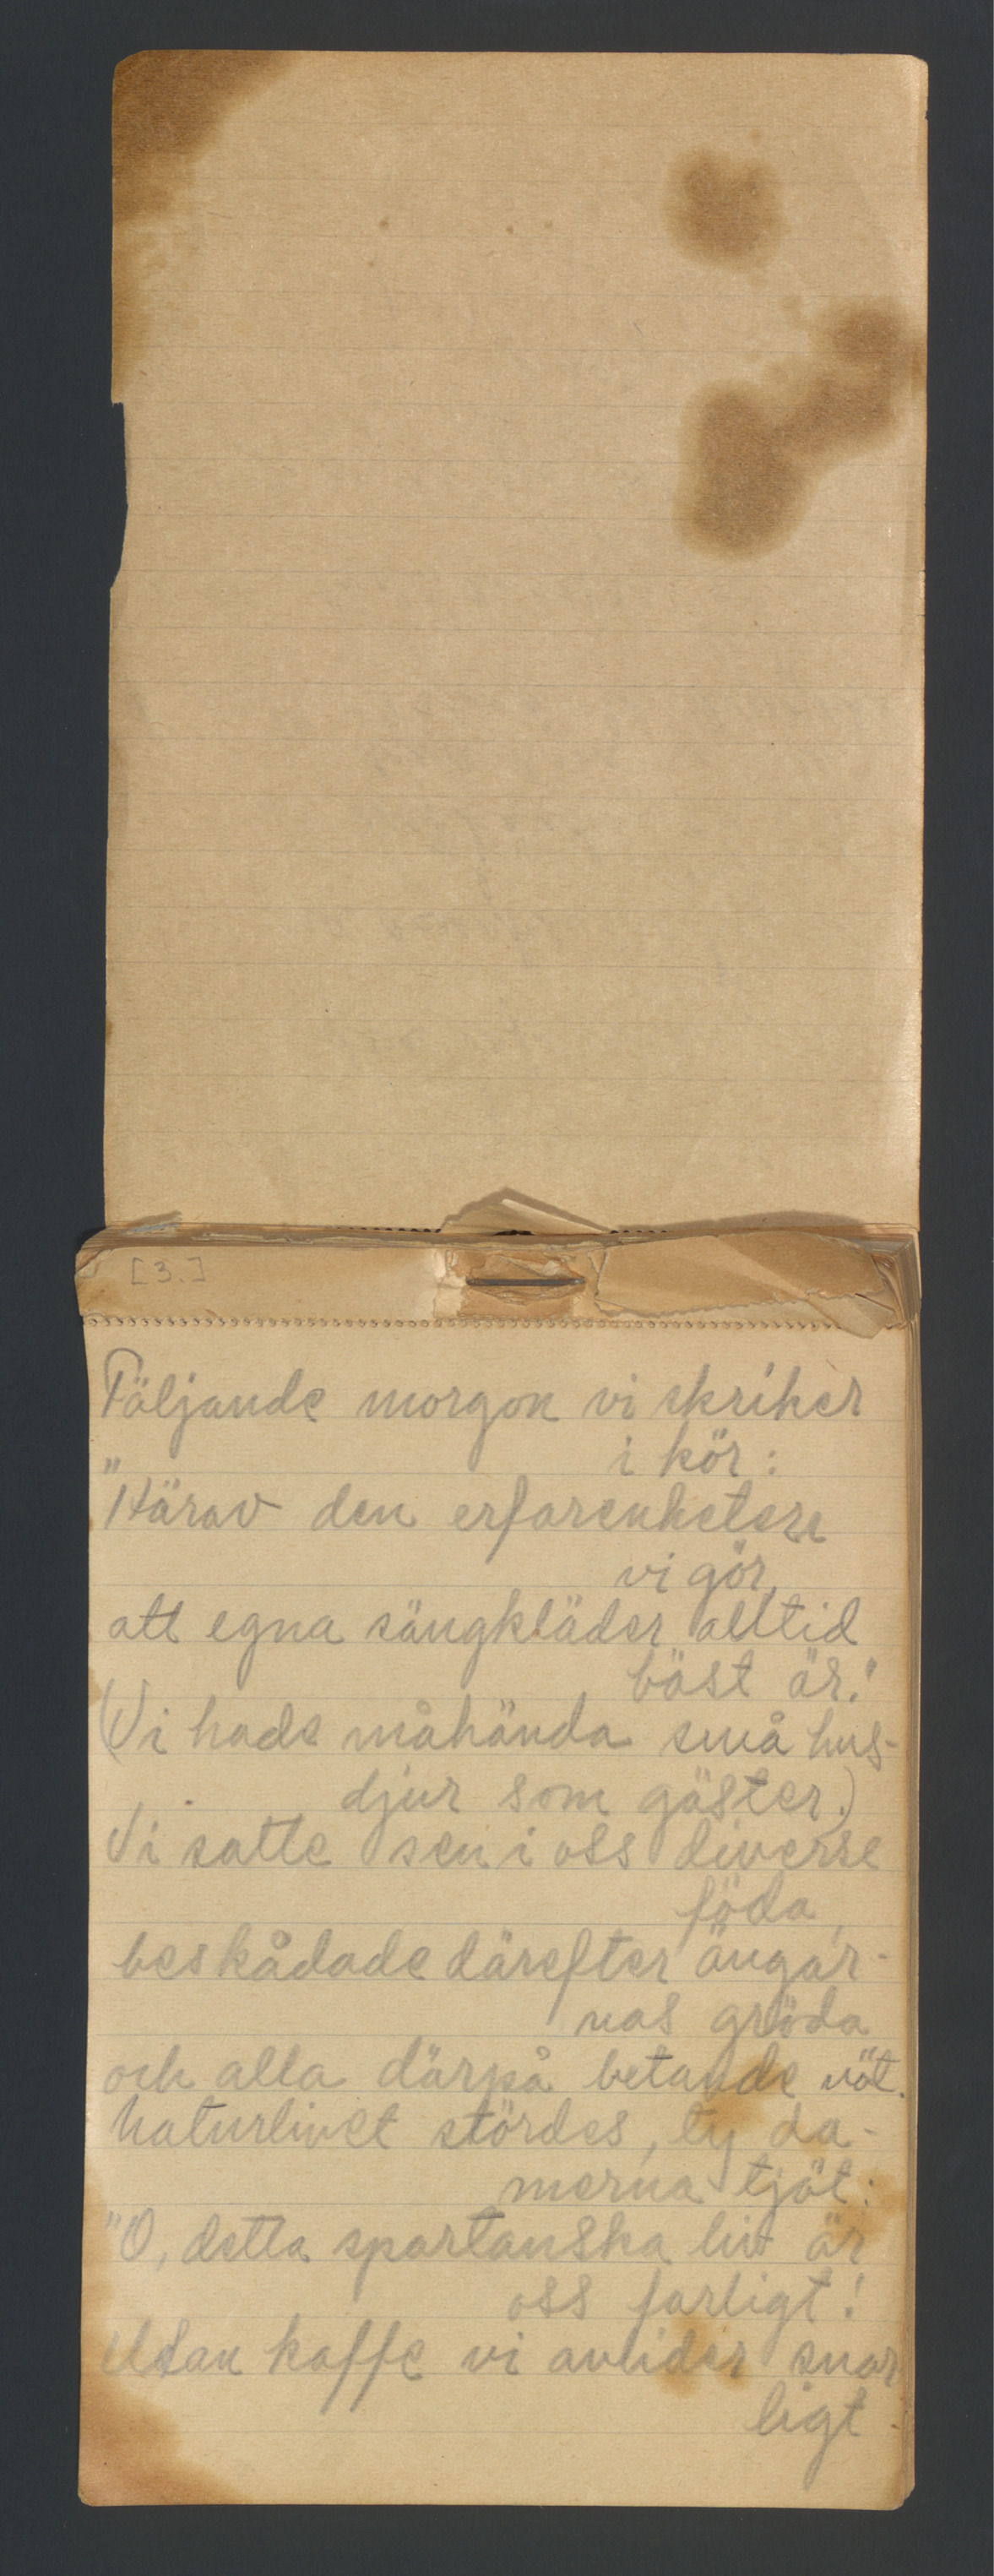 [3.]
Följande morgon vi skriker
i kör:
"Härav den erfarenheten
vi gör,
att egna sängkläder alltid
bäst är!"
(Vi hade måhända små hus-
djur som gäster.)
Vi satte sen i oss diverse
föda,
beskådade därefter ängar-
nas gröda
och alla därpå betande nöt.
Naturlivet stördes, ty da-
merna tjöt:
"O, detta spartanska liv är
oss farligt!
Utan kaffe vi avlider snar
ligt